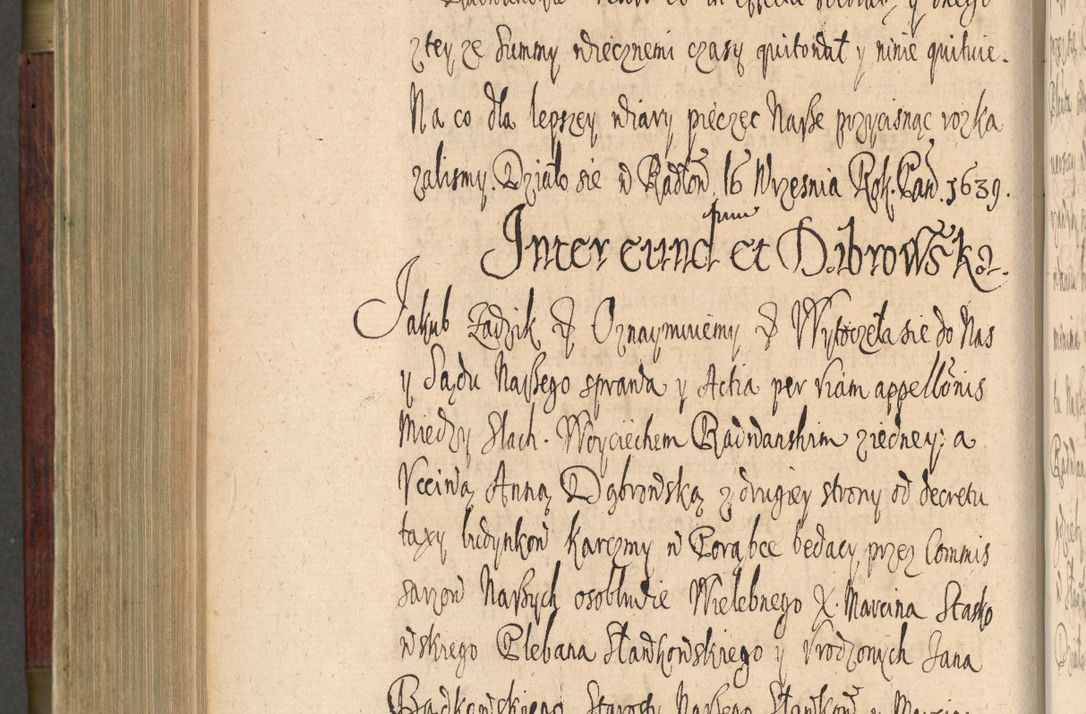 z tey ze Summy wiecznemi czasy quitował y ninie quituie.
Na co dla lepszey wiary pieczęc Naszę przycisnąc rozka
zalismy. Działo sie w Radłow 16 Wrzesnia Rok. Pań. 1639.
Inter eund et Dąbrowską.
Jakub Zadzik Oznaymuiemy Wytoczeła sie do Nas
y Sądu Naszego sprawa y Actia per viam appellonis
Między Slach. Woyciechem Radwanskim z iedney: a
Vcciwą Anną Dąbrowską z drugiey strony od decretu
taxy budynkow Karczmy w Porąbce bedacy przez Commis
sarzow Naszych osobliwie Wielebnego X. Marcina Stasko
wskiego Plebana Sławkowskiego y Vrodzonych Jana
Starosty Naszego Sławkow y